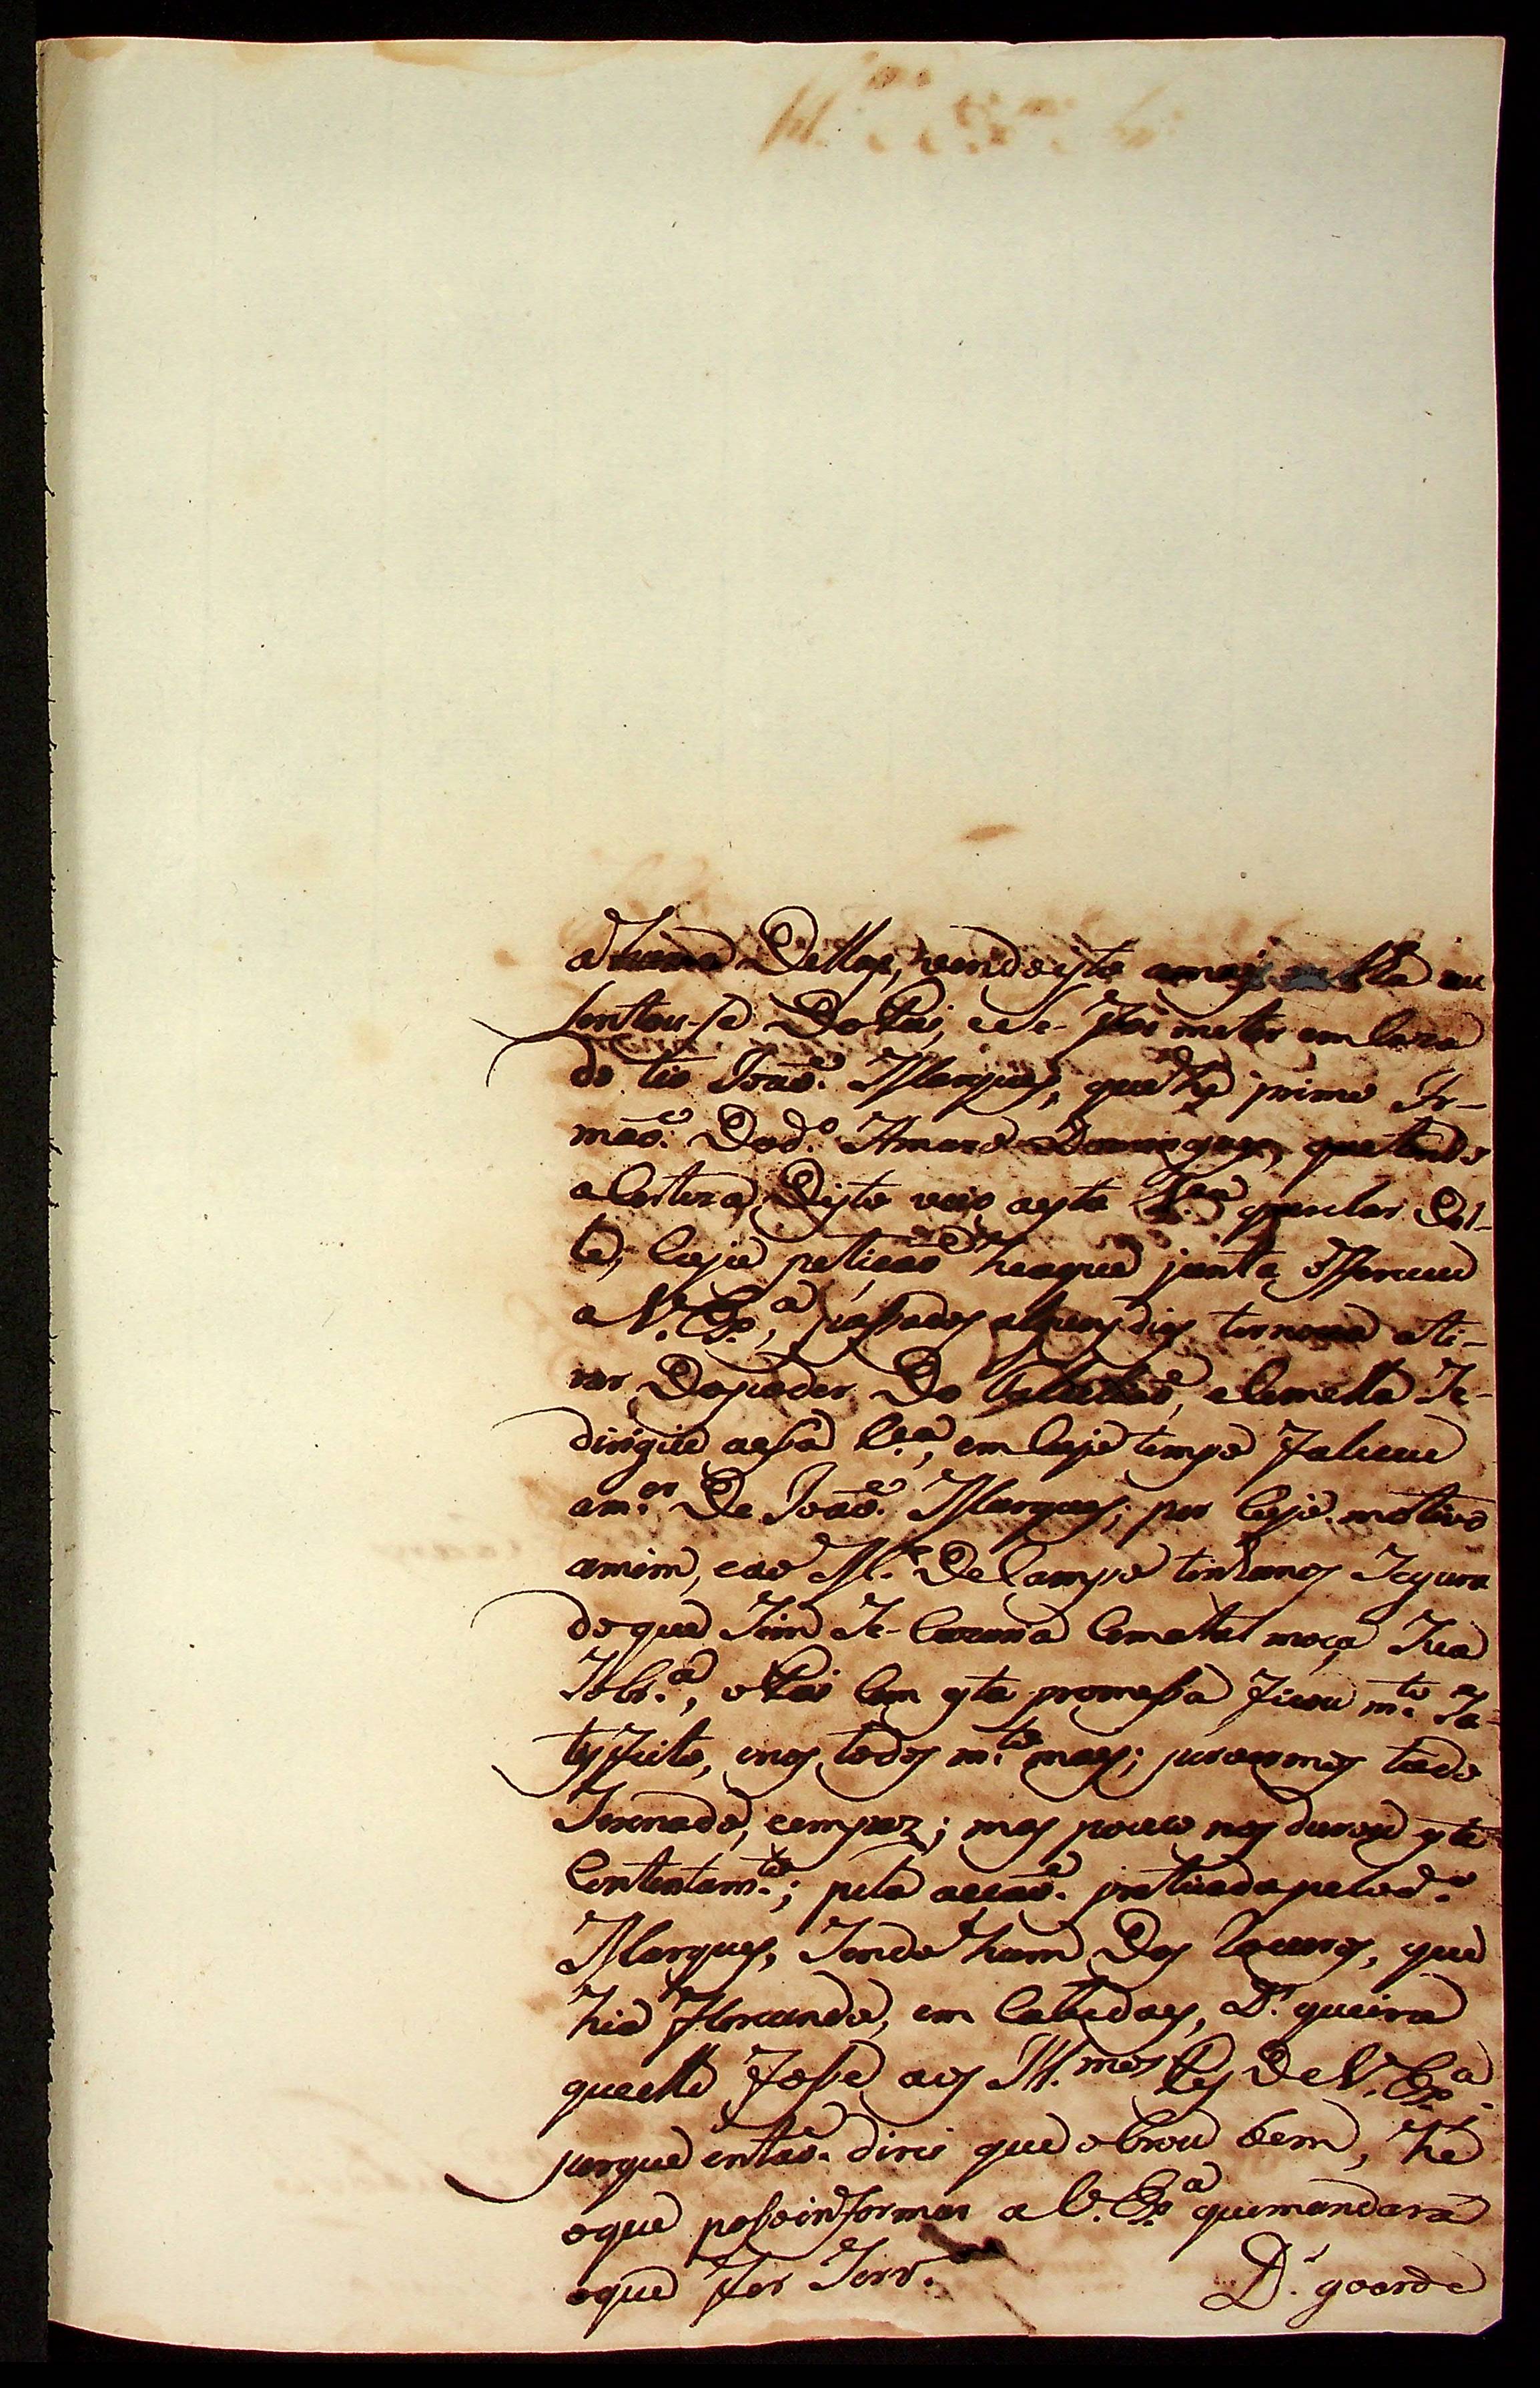 a huma Dellas, vendo isto a mais velha au
sentou-se Do Pai, e se foi meter em Caza
do tio João Marques, que he primo Ir-
mão Do d.º Amaro Domingues, que tendo
a Certeza Disto veio a esta V.ª queixar Des-
te, Cuja petição he a que junta offereceu
a V. Ex.ª, passados alguns dias tornou a ti-
rar Do poder Do e Com ella Se
dirigiu a essa C.e, em Cujo tempo faleceu
a m.er De João Marques; por Cujo motivo
a mim, e ao M.e De Campo tinhamos Segura
do que Sim Se Cazaria Com a tal moça Sua
Sobr.ª, o Pai Com esta promessa ficou m.to Sa-
tisfeito, e nós todos m.to mais; pusemos tudo
Serenado, e em paz; mas pouco nos durou este
Contentam.to; pela acção praticada pelo d.º
Marques, Sendo hum Dos Loucos, que
hia florecendo, em Cabedaes, D.s queira
que elle fosse aos Ill.mos Pes De V. Ex.ª
porque então direi que obrou bem, he
o que posso informar a V. Ex.ª que mandará
o que for Serv.º
D.s goarde